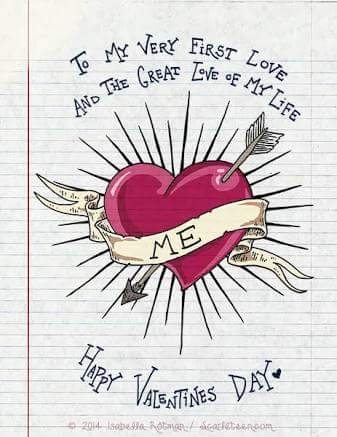 To My Very First Love
And The Great Love of My Life
ME
Happy Valentines Day
© 2014 Isabella Rotman / scarleteen.com